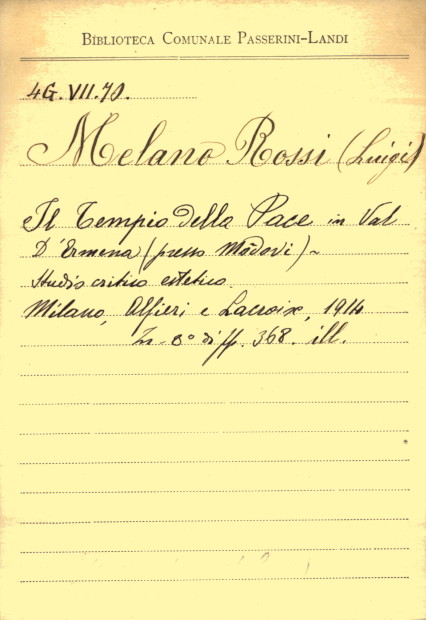 BIBLIOTECA COMUNALE PASSERINI-LANDI
4G.VII.70.
Melano Rossi (Luigi)
Il Tempio della Pace in Val
D'Ermena (presso Modovi) ~
studio critico estetico.
Milano, Alfieri e Lacroix, 1914
In-8º di ff. 368. ill.